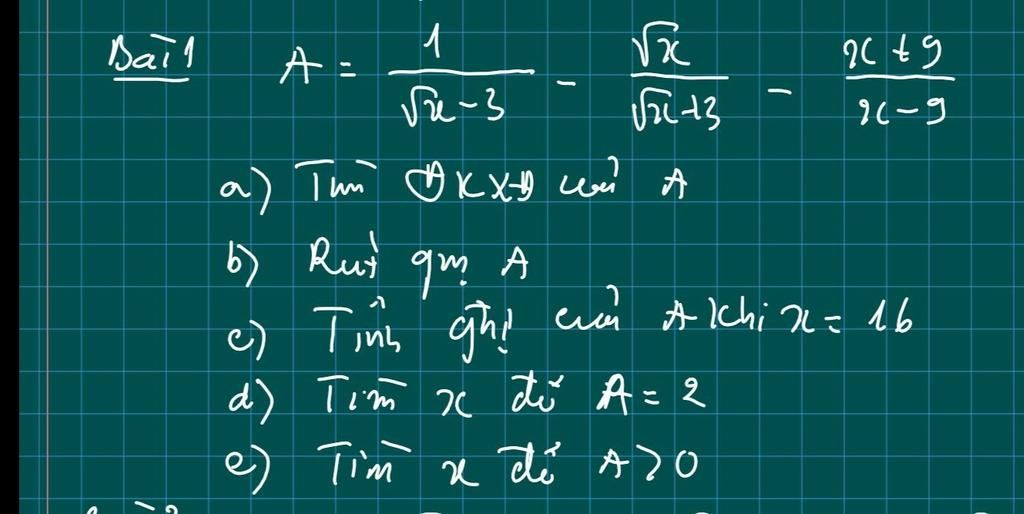 Bài 1 A = 1/(√x - 3) - √x/(√x + 3) - (x + 9)/(x - 9)
a) Tìm ĐKXĐ của A
b) Rút gọn A
c) Tính gtrị của A khi x = 16
d) Tìm x để A = 2
e) Tìm x để A > 0